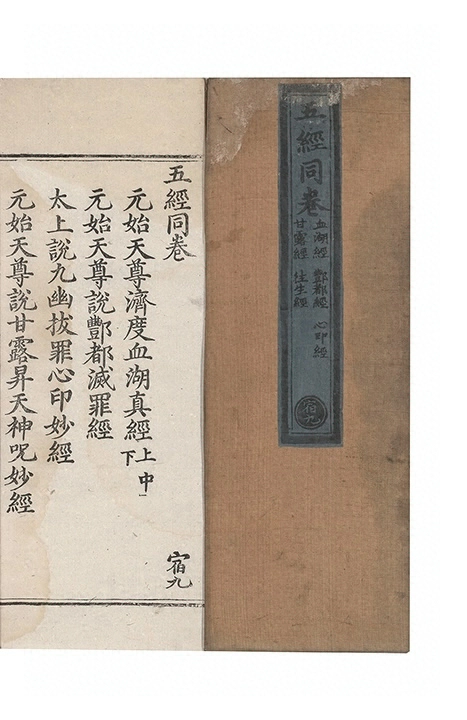 五經同卷
血湖經 酆都經 心印經
甘露經 往生經
宿九
五經同卷 宿九
元始天尊濟度血湖真經上中下
元始天尊說酆都滅罪經
太上說九幽拔罪心印妙經
元始天尊說甘露昇天神呪妙經